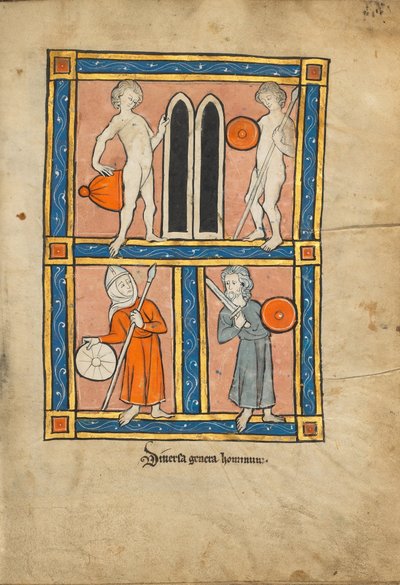 Diversa genera hominum.